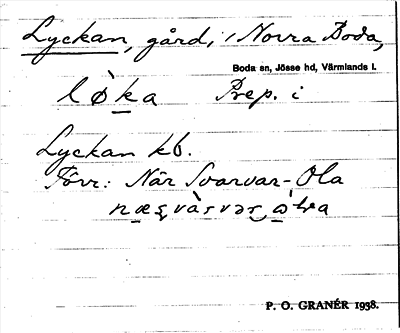 Lyckan, gård, i Norra Boda,
Boda sn, Jösse hd, Värmlands l.
Prep. i
Lyckan kb.
Förr: När Svarvar-Ola
P. O. GRANÉR 1938.